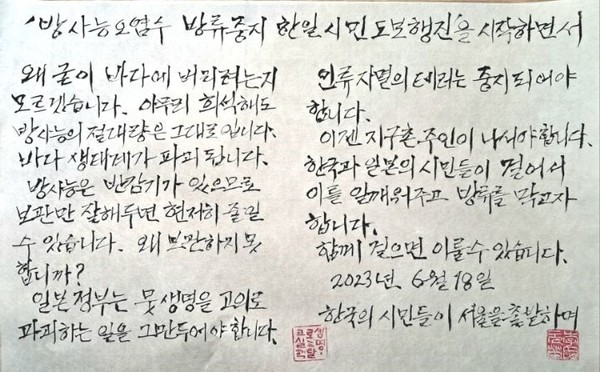 '방사능오염수 방류중지 한일시민도보행진'을 시작하면서
왜 굳이 바다에 버리려는지
모르겠습니다. 아무리 희석해도
방사능의 절대량은 그대로입니다.
바다 생태계가 파괴 됩니다.
방사능은 반감기가 있으므로
보관만 잘해두면 현저히 줄일
수 있습니다. 왜 보관하지 못
합니까?
일본정부는 뭇 생명을 고의로
파괴하는 일을 그만두어야 합니다.
인류자멸의 테러는 중지되어야
합니다.
이젠 지구촌 주인이 나서야합니다.
한국과 일본의 시민들이 걸어서
이를 일깨워주고 방류를 막고자
합니다.
함께 걸으면 이룰수 있습니다.
2023년 6월 18일
한국의 시민들이 서울을 출발하며